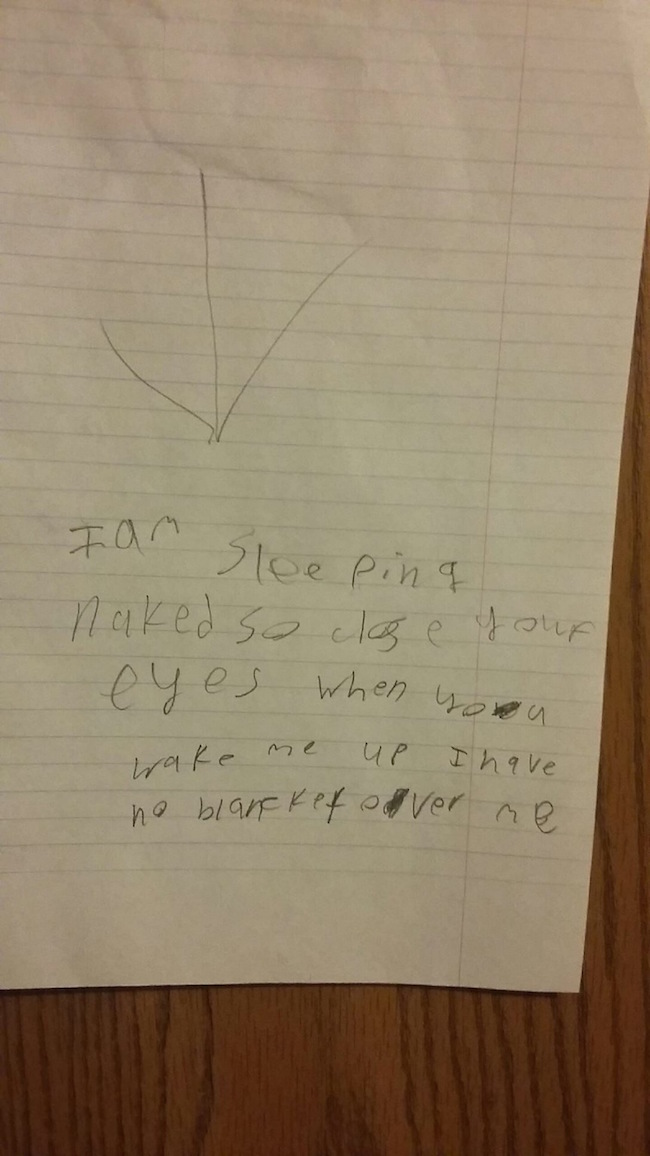 I am sleeping
naked so close your
eyes when you
wake me up I have
no blancket over me